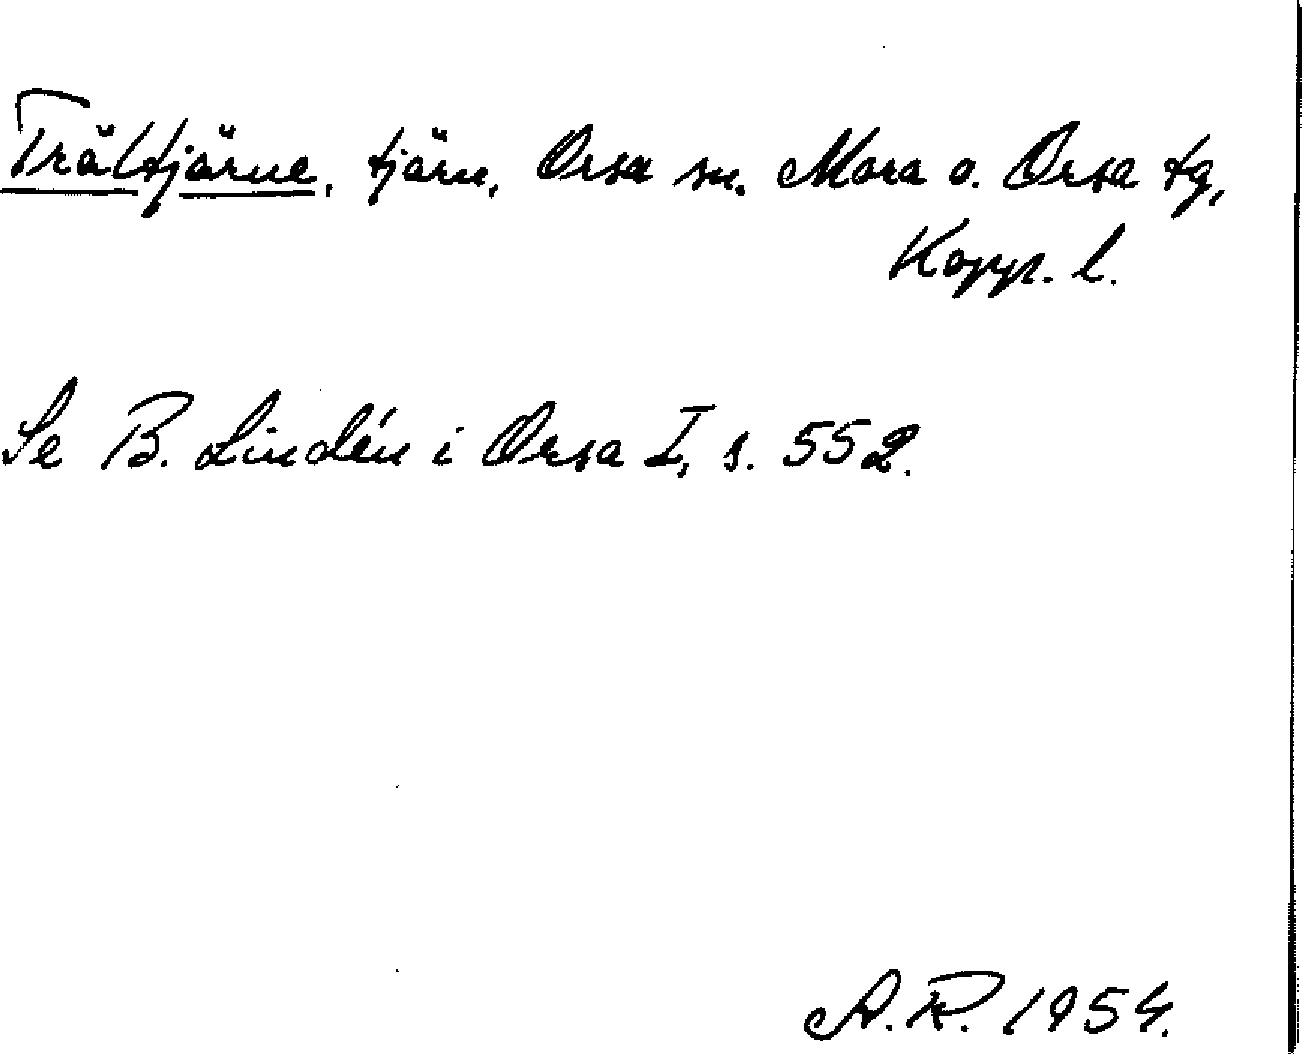 Trältjärne, tjärn, Orsa sn. Mora o. Orsa tg,
Kopp. l.
Se B. Lindén i Orsa I, s. 552.
A.R. 1954.